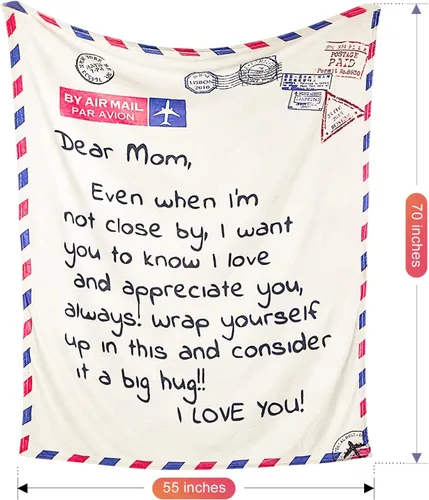 POSTAGE
PAID
Permit No.8630
LISBON
2010
BY AIR MAIL
PAR AVION
Dear Mom,
Even when i'm
not close by, I want
you to know I love
and appreciate you,
always! wrap yourself
up in this and consider
it a big hug!!
I LOVE YOU!
70 inches
55 inches